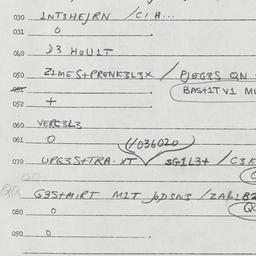 030 INT3HEJRN /CIH...
031 0
040 D3 HOU1T
050 Z1MES+PRENK3L3X /PJEG3S QN
BAS+1TV1 MU
051
052 +
060 VERC3L3
061 0
(//036020)
070 UPG3S+TRA.XT SG1L3+ /C3K
G3S+MIRT M1T JOD3N3 /ZAL1B2
080 0
090 0